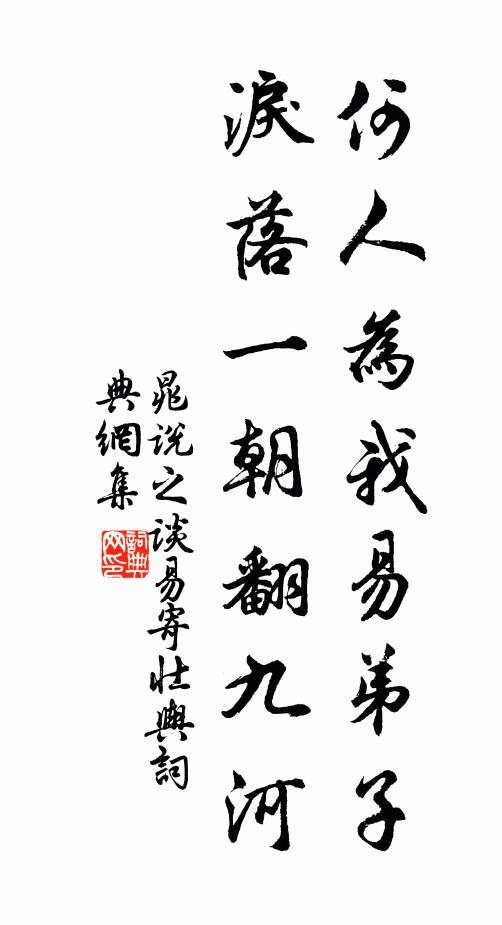 何人為我易弟子
淚落一朝翻九河
晁說之談易寄壯輿詞
典網集
詞典
网印